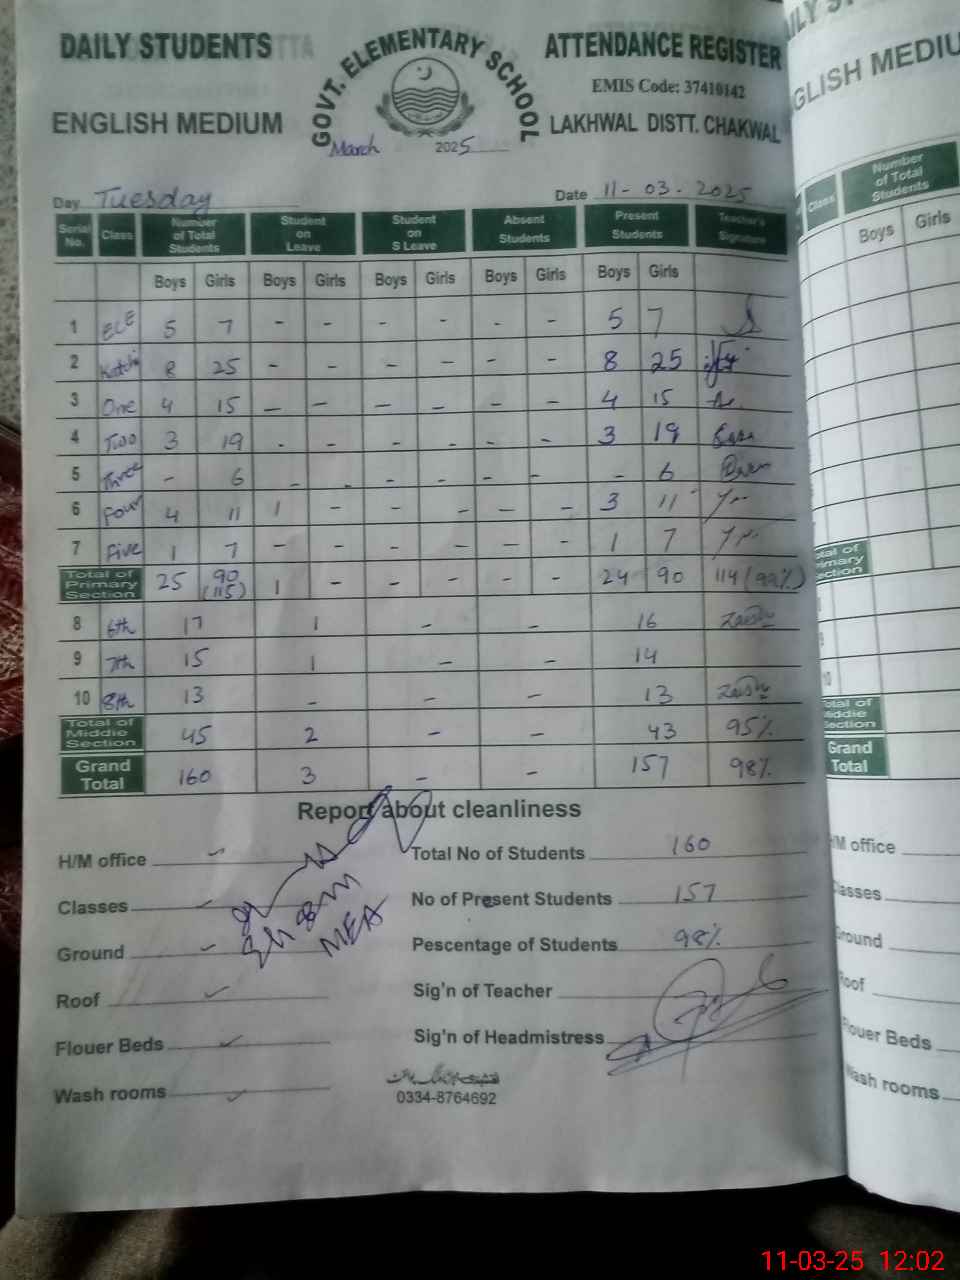 DAILY STUDENTS
GOVT. ELEMENTARY SCHOOL
ATTENDANCE REGISTER
EMIS Code: 37410142
ENGLISH MEDIUM
LAKHWAL DISTT. CHAKWAL
March 2025
Day Tuesday Date 11-03-2025
Serial No. Class Number of Total Students Student on Leave Student on S Leave Absent Students Present Students Teacher's Signature
Boys Girls Boys Girls Boys Girls Boys Girls Boys Girls
1 ECE 5 7 - - - - - - 5 7
2 Katchi 8 25 - - - - - 8 25
3 One 4 15 - - - - - - 4 15
4 Two 3 19 - - - - - - 3 19
5 Three - 6 - - - - - - - 6
6 Four 4 11 1 - - - - - 3 11
7 Five 1 7 - - - - - - 1 7
Total of Primary Section 25 90 (115) 1 - - - - - 24 90 114 (99%)
8 6th 17 1 - - 16
9 7th 15 1 - - 14
10 8th 13 - - - 13
Total of Middie Section 45 2 - - 43 95%
Grand Total 160 3 - - 157 98%
Report about cleanliness
H/M office ✓ Total No of Students 160
Classes ✓ No of Present Students 157
MEA
Ground ✓ Pescentage of Students 98%
Roof ✓ Sig'n of Teacher
Flouer Beds ✓ Sig'n of Headmistress
Wash rooms ✓
0334-8764692
GLISH MEDIU
Class Number of Total Students
Boys Girls
otal of rimary ection
10
otal of Middie Section
Grand Total
/M office
lasses
round
oof
louer Beds
ash rooms
11-03-25 12:02